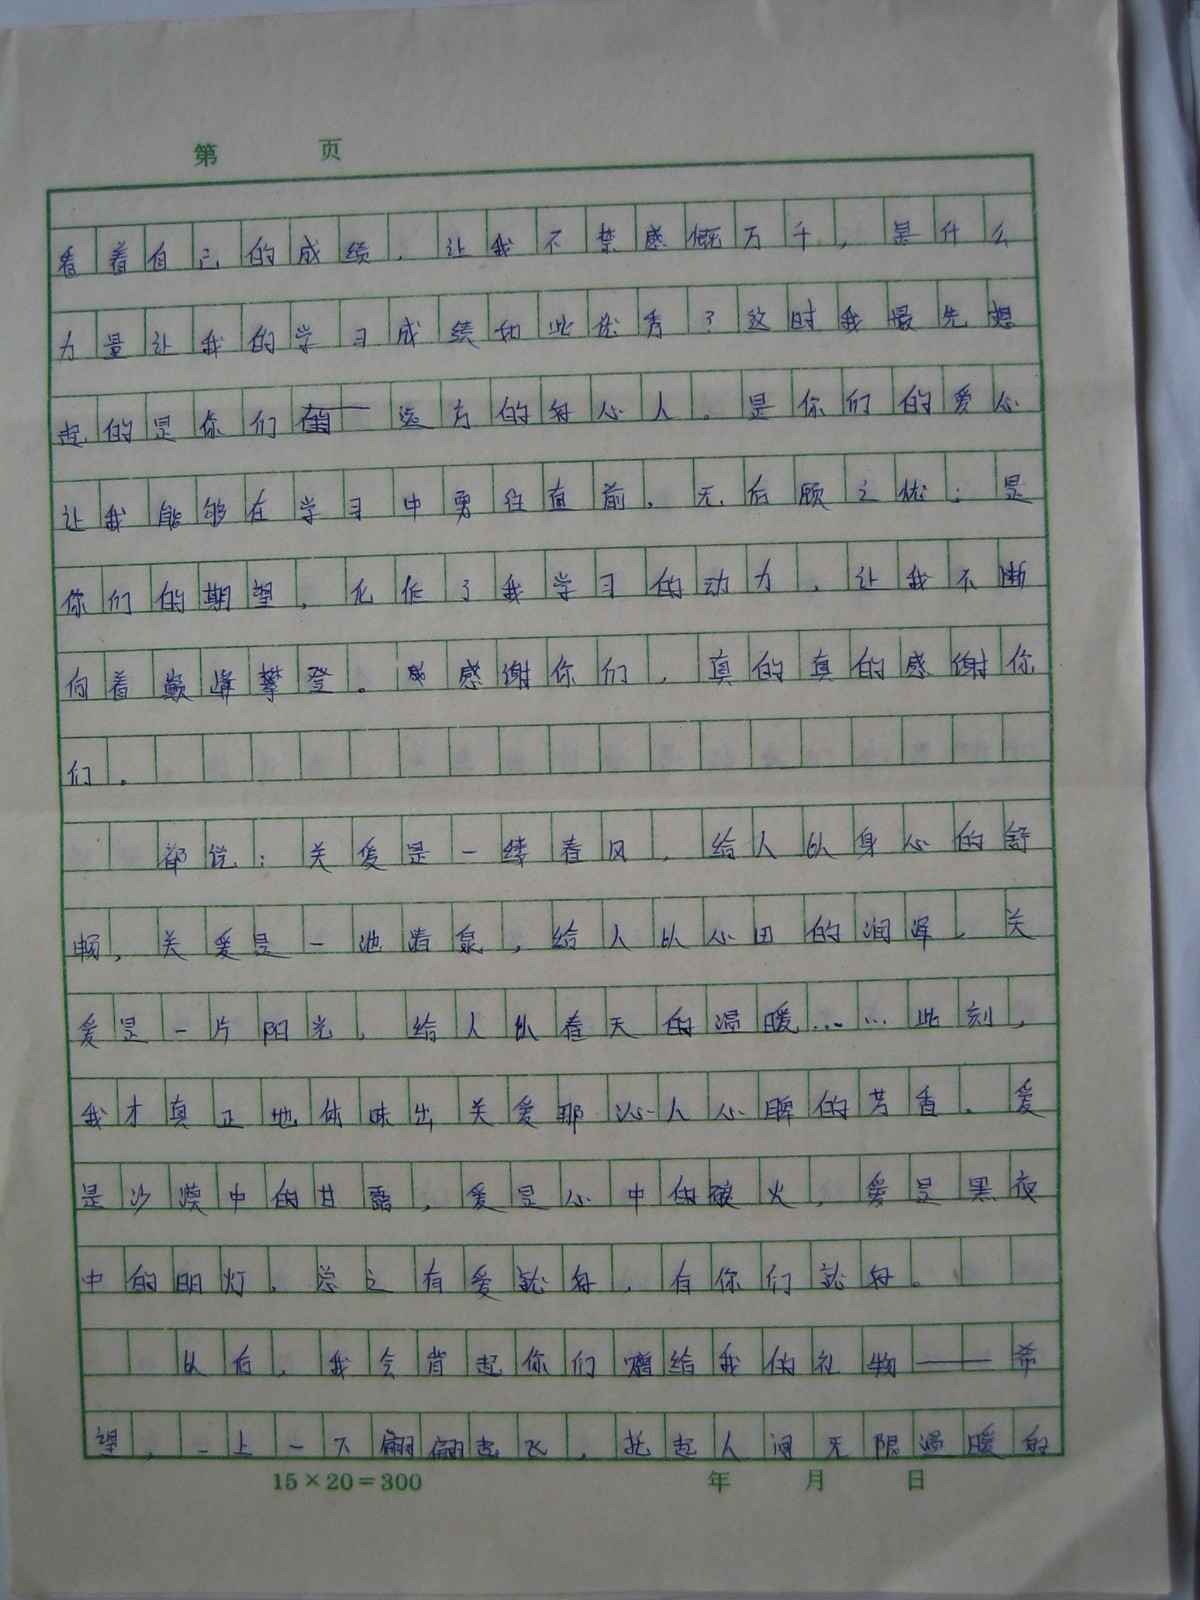 第 页
看着自己的成绩，让我不禁感慨万千，是什么
力量让我的学习成绩如此优秀？这时我最先想
起的是你们——远方的好心人。是你们的爱心
让我能够在学习中勇往直前，无后顾之忧；是
你们的期望，化作了我学习的动力，让我不断
向着巅峰攀登。感谢你们，真的真的感谢你
们。
都说：关爱是一缕春风，给人以身心的舒
畅，关爱是一池清泉，给人以心田的润泽，关
爱是一片阳光，给人以春天的温暖……此刻，
我才真正地体味出关爱那沁人心脾的芳香。爱
是沙漠中的甘露，爱是心中的火，爱是黑夜
中的明灯。总之有爱就好，有你们就好。
以后，我会背起你们赠给我的礼物——希
望，一上一下翩翩起飞，托起人间无限温暖的
15×20=300 年 月 日